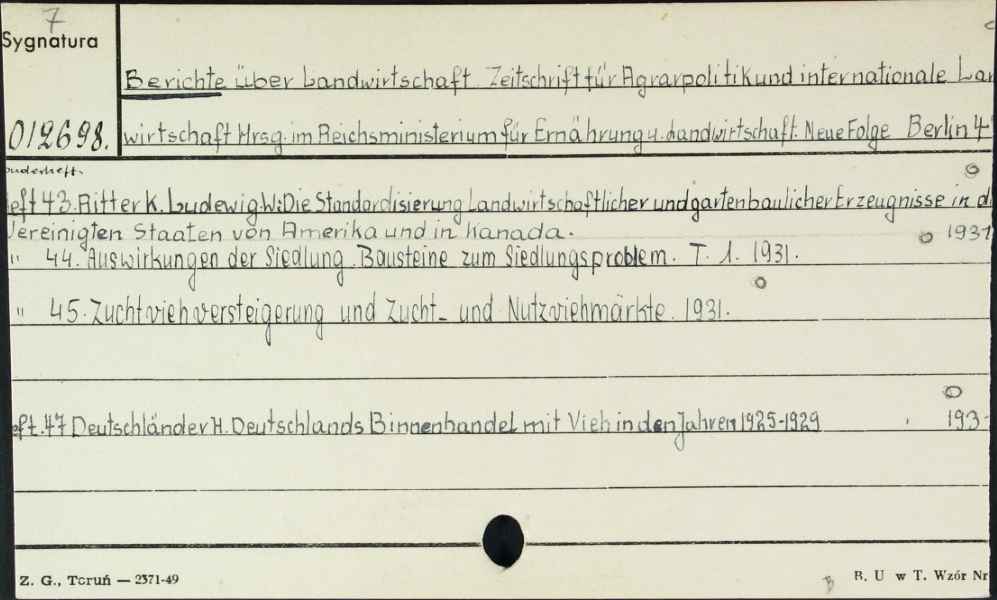 7
Sygnatura
Berichte über Landwirtschaft. Zeitschrift für Agrarpolitik und internationale Lan
012698. wirtschaft Hrsg. im Reichsministerium für Ernährung u. Landwirtschaft. Neue Folge Berlin 4
onderheft.
eft 43. Ritter K. Ludewig. W: Die Standardisierung Landwirtschaftlicher und gartenbaulicher Erzeugnisse in d
Vereinigten Staaten von Amerika und in Kanada. 1931
" 44. Auswirkungen der Siedlung. Bausteine zum Siedlungsproblem. T. 1. 1931.
" 45. Zuchtviehversteigerung und Zucht- und Nutzviehmärkte. 1931.
eft. 47 Deutschländer H. Deutschlands Binnenhandel mit Vieh in den Jahren 1925-1929 193
Z. G., Toruń — 2371-49
B. U w T. Wzór Nr